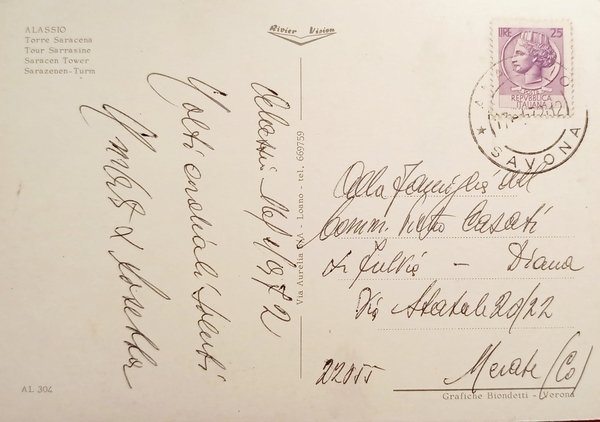 ALASSIO
Torre Saracena
Tour Sarrasine
Saracen Tower
Sarazenen-Turm
Rivier Vision
LIRE 25
REPUBBLICA
ITALIANA
SAVONA
Alassio 1972
Molti cordiali saluti
Via Aurelia - Loano - tel. 669759
Alla Famiglia del
Comm. Pietro Casati
Fulvia - Diana
Via Statale 20/22
22055 Merate (Co)
AL 304
Grafiche Biondetti - Verona